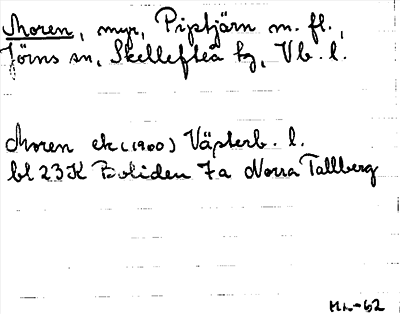 Moren, myr, Piptjärn m. fl.,
Jörns sn, Skellefteå tg, Vb. l.
Moren ek (1900) Västerb. l.
bl 23K Boliden 7a Norra Tallberg